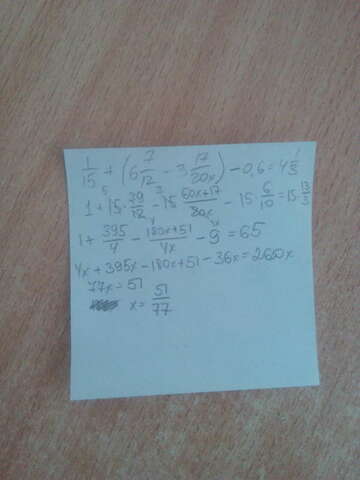 1/15 + (6 7/12 - 3 17/20x) - 0,6 = 4 1/3
1 + 15·79/12 - 15 60x+17/20x - 15·6/10 = 15·13/3
1 + 395/4 - 180x+51/4x - 9 = 65
4x + 395x - 180x + 51 - 36x = 260x
77x = 51
x = 51/77